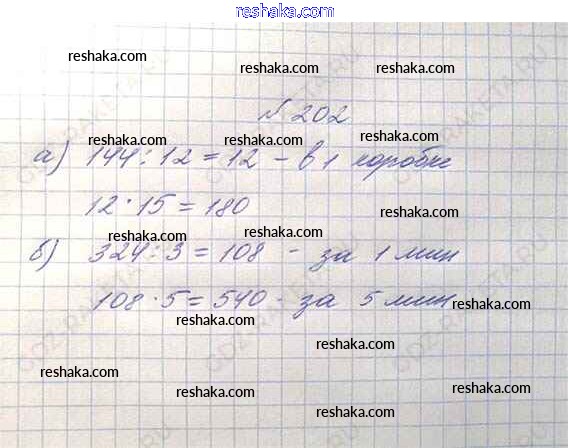 reshaka.com
reshaka.com
reshaka.com reshaka.com
№ 202
reshaka.com reshaka.com reshaka.com
а) 144 : 12 = 12 - в 1 коробке
12 · 15 = 180
reshaka.com
reshaka.com reshaka.com
б) 324 : 3 = 108 - за 1 мин
108 · 5 = 540 - за 5 мин
reshaka.com
reshaka.com
reshaka.com
reshaka.com
reshaka.com
reshaka.com
reshaka.com